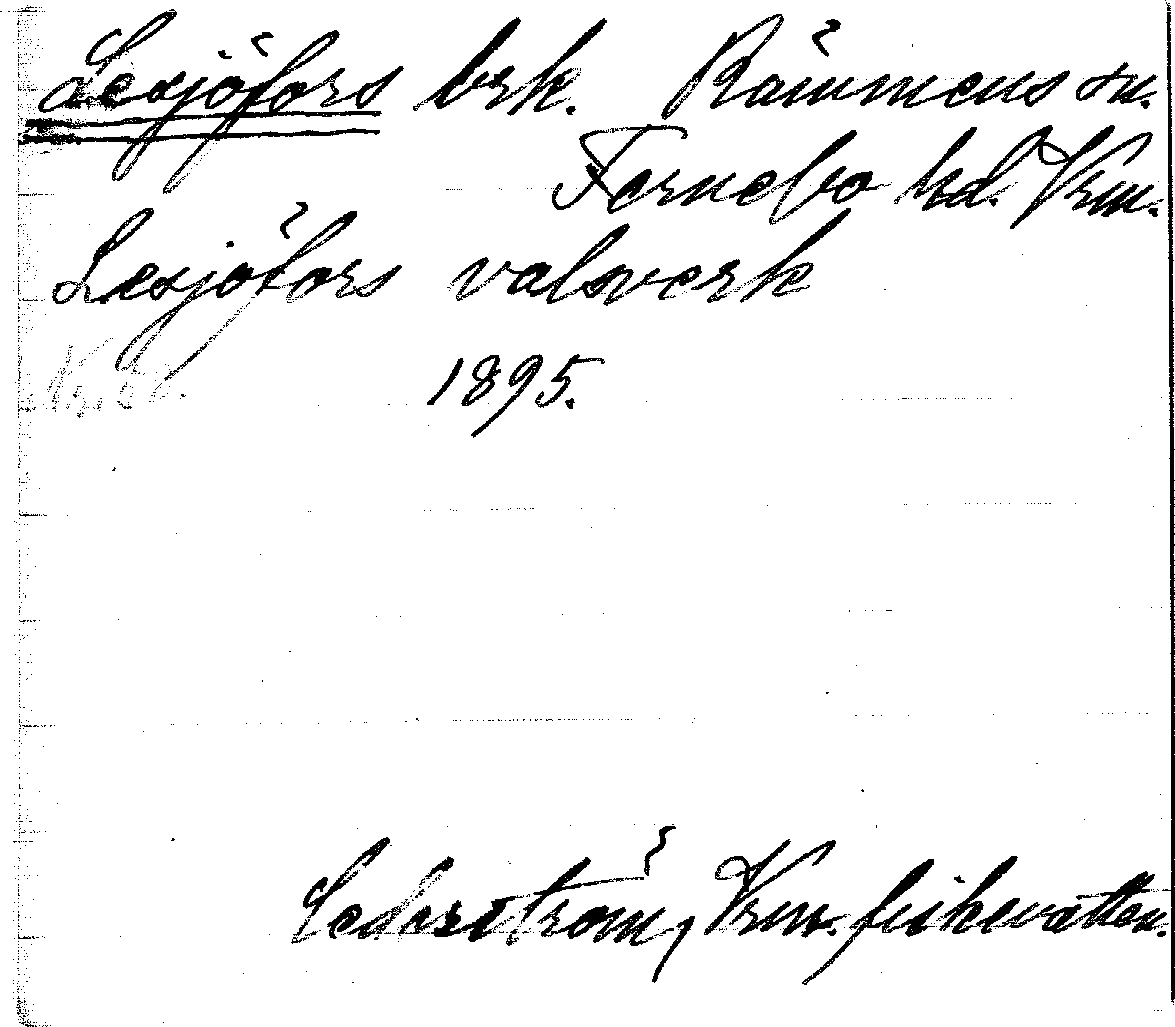 Lesjöfors brk. Rämmens sn.
Fernebo hd. Vrm.
Lesjöfors valsverk
1895.
Cederström, Vrm. fiskevatten.